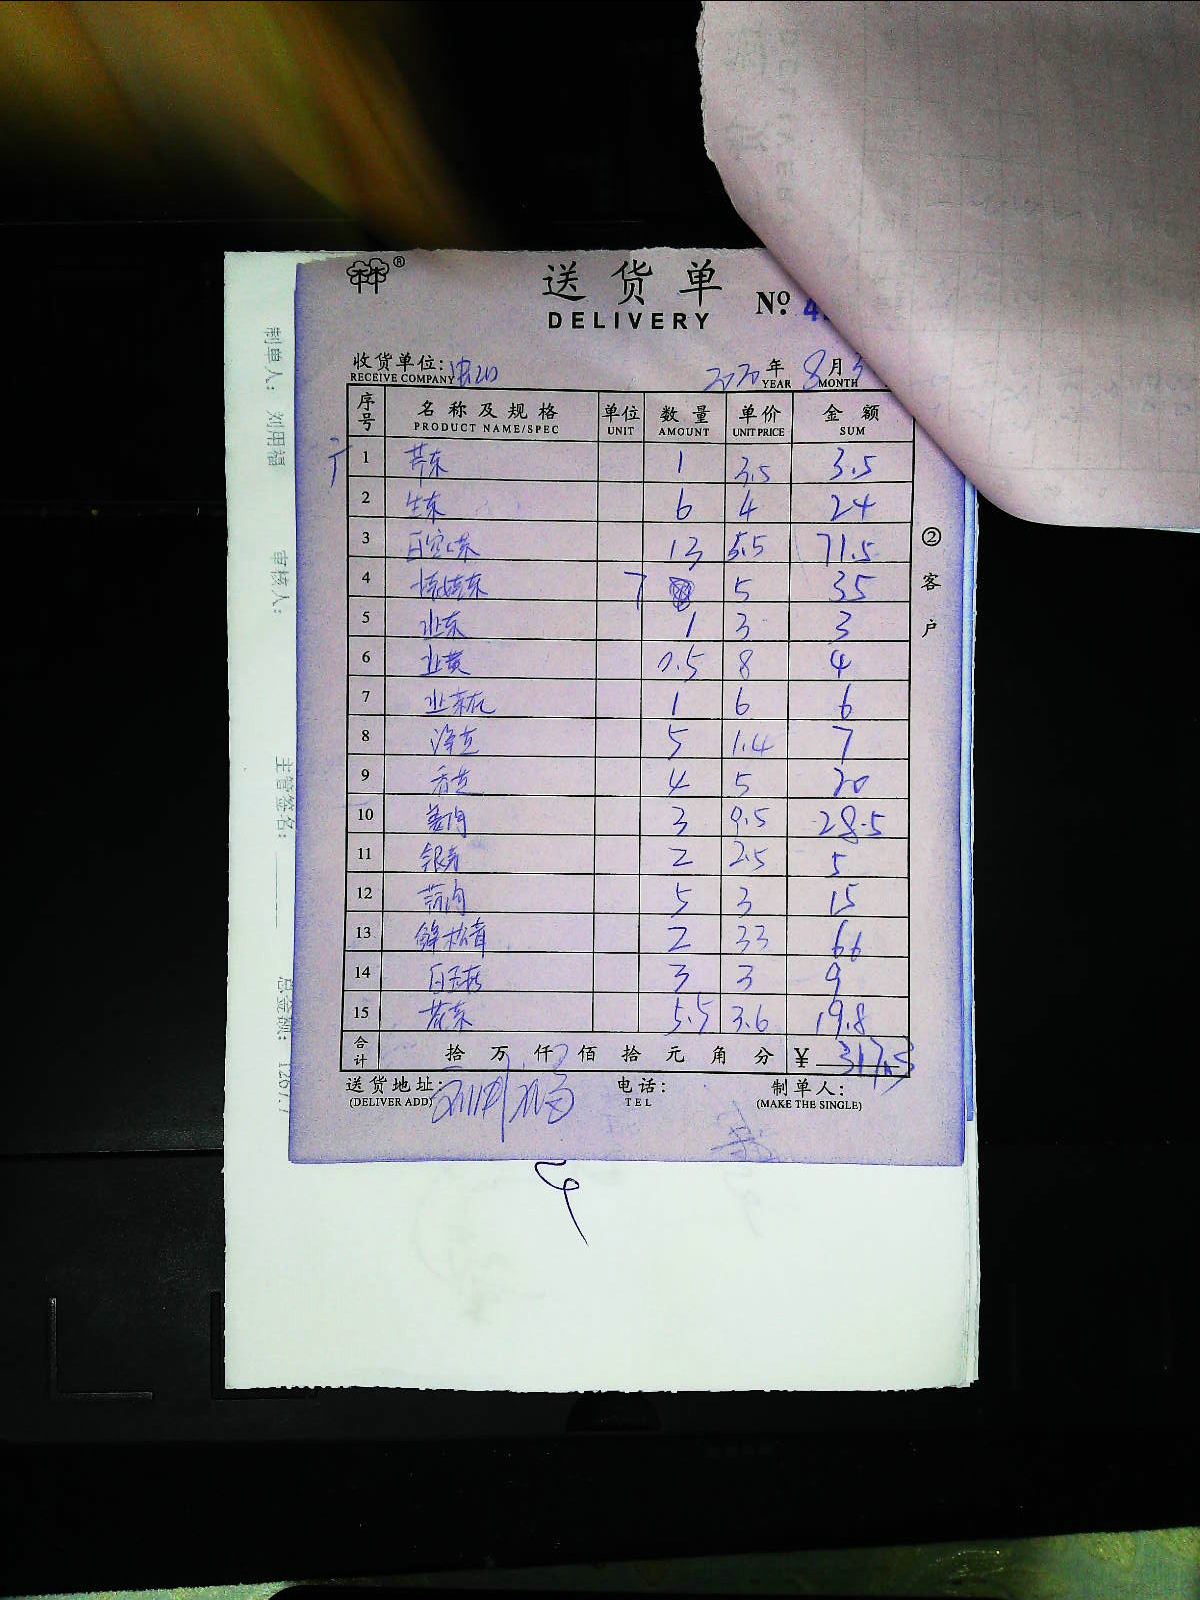 送货单
DELIVERY
Nº. 4
收货单位:
RECEIVE COMPANY
2020 年 8 月
YEAR MONTH
序号 名称及规格 单位 数量 单价 金额
PRODUCT NAME/SPEC UNIT AMOUNT UNIT PRICE SUM
1 芹菜 1 3.5 3.5
2 生菜 6 4 24
3 13 5.5 71.5
4 7 5 35
5 韭菜 1 3 3
6 韭黄 0.5 8 4
7 韭菜花 1 6 6
8 5 1.4 7
9 香芝 4 5 20
10 姜肉 3 9.5 28.5
11 银芽 2 2.5 5
12 蒜肉 5 3 15
13 鲜松茸 2 33 66
14 白玉菇 3 3 9
15 5.5 3.6 19.8
合计 拾 万 仟 佰 拾 元 角 分 ¥ 317.5
送货地址: 电话: 制单人:
(DELIVER ADD) TEL (MAKE THE SINGLE)
刘用福
②客户
制单人: 刘用福 审核人: 主管签名: 总金额: 1267.7